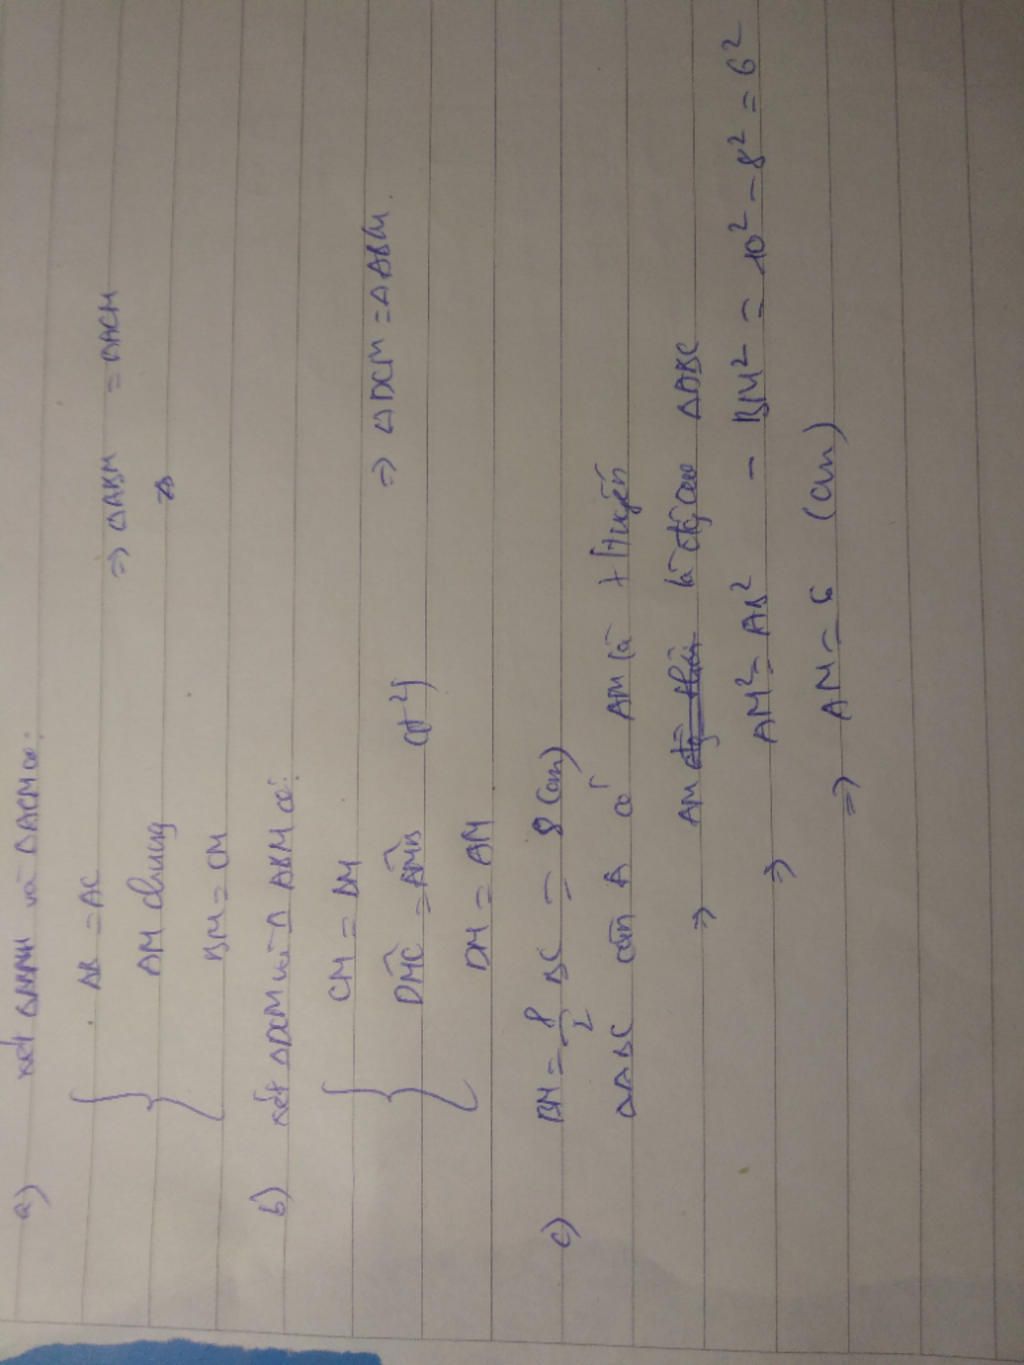 a) xét ΔABM và ΔACM có:
AB = AC
AM chung
BM = CM
⇒ ΔABM = ΔACM
b) xét ΔDCM và ΔABM có:
CM = BM
DMC = AMB (đ²)
DM = AM
⇒ ΔDCM = ΔABM.
c) BM = BC = 8 (cm)
ΔABC cân A có AM là t tuyến
⇒ AM là đg cao ΔABC
⇒ AM² = AB² - BM² = 10² - 8² = 6²
⇒ AM = 6 (cm)